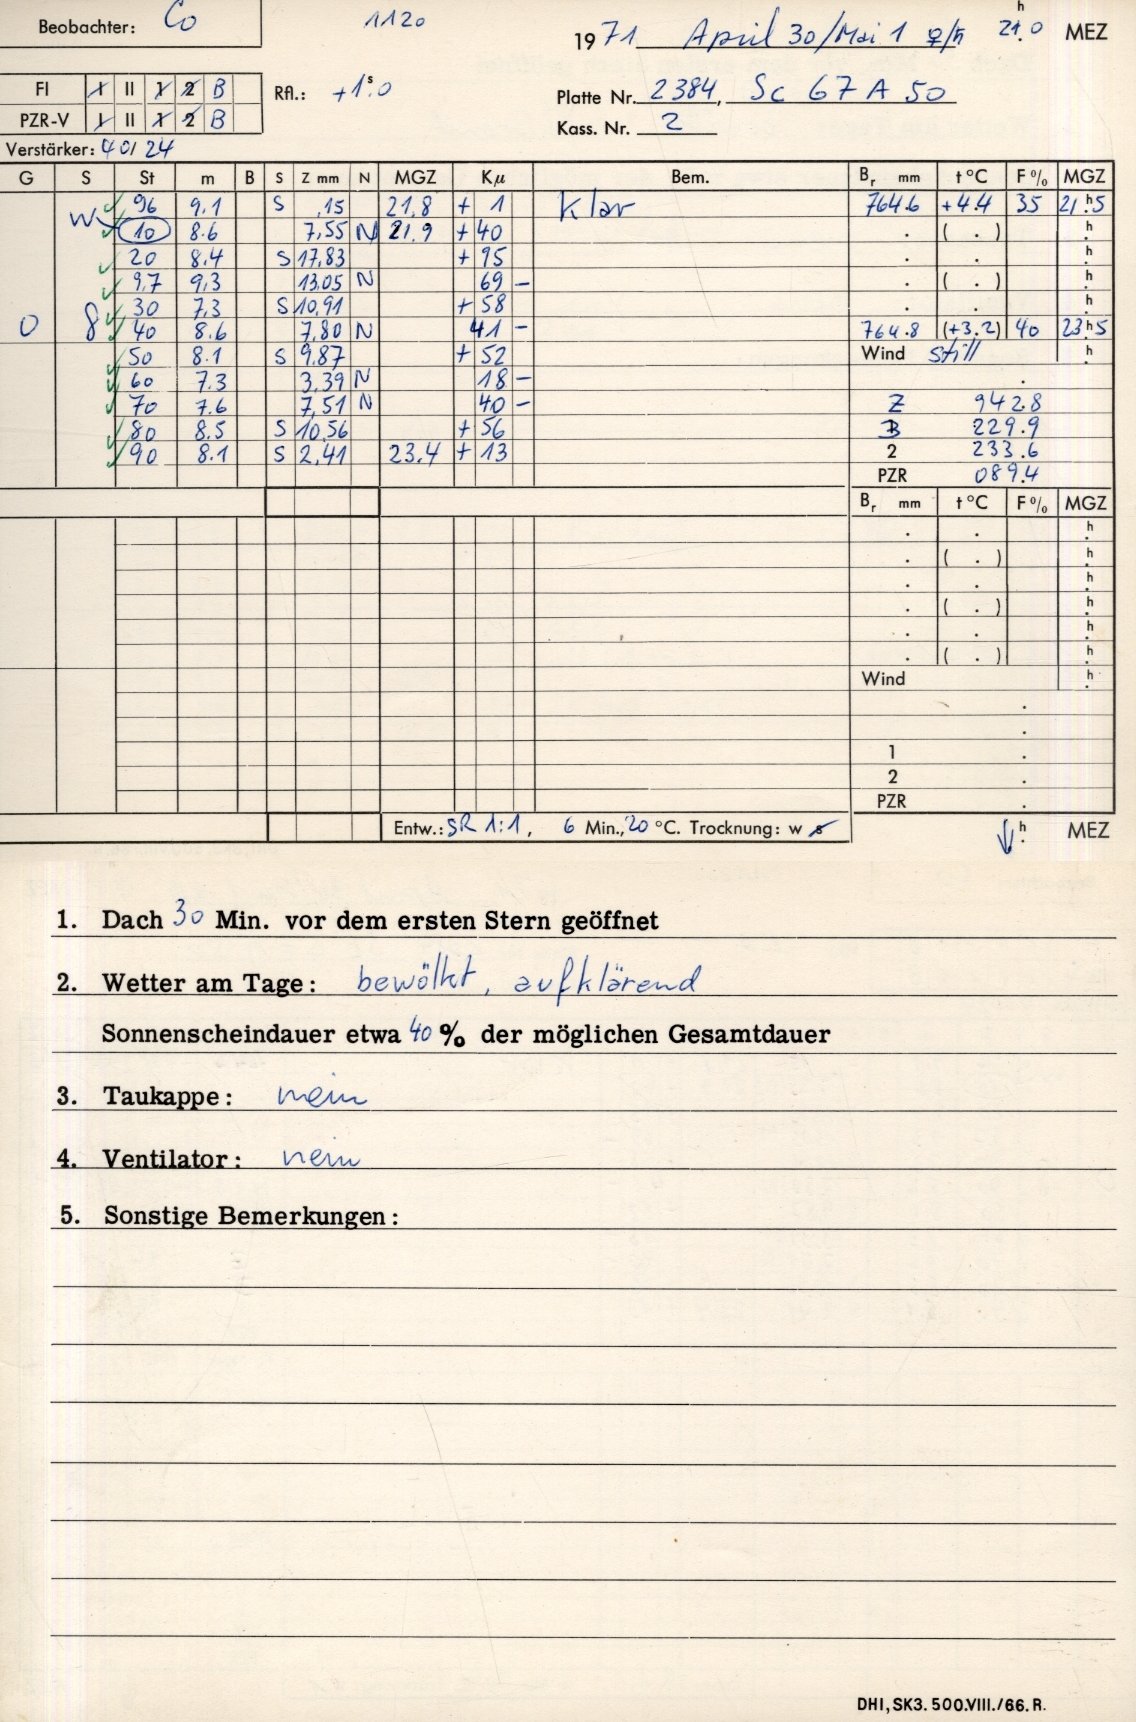 Beobachter: Co 1120
1971 April 30/Mai 1 ♀/♄ 21.ʰ0 MEZ
FI I II 1 2 B Rfl.: +1ˢ.0
Platte Nr. 2384, Sc 67 A 50
PZR-V I II 1 2 B
Kass. Nr. 2
Verstärker: 40/24
G S St m B S Z mm N MGZ Kμ Bem. Bᵣ mm t °C F % MGZ
W 96 9.1 S ,15 21,8 + 1 klar 764.6 +4.4 35 21ʰ.5
10 8.6 7,55 N 21.9 +40 . ( . ) ʰ.
20 8.4 S 17,83 +95 . . ʰ.
97 9,3 13,05 N 69 - . ( . ) ʰ.
30 7,3 S 10,91 +58 . . ʰ.
0 8 40 8.6 7,80 N 41 - 764.8 (+3.2) 40 23ʰ.5
50 8.1 S 9,87 +52 Wind still ʰ.
60 7.3 3,39 N 18 - .
70 7.6 7,51 N 40 - Z 942.8
80 8.5 S 10,56 +56 B 229.9
90 8.1 S 2,41 23.4 +13 2 233.6
PZR 089.4
Bᵣ mm t °C F % MGZ
. . ʰ.
. ( . ) ʰ.
. . ʰ.
. ( . ) ʰ.
. . ʰ.
. ( . ) ʰ.
Wind ʰ.
.
.
1 .
2 .
PZR .
Entw.: SR 1:1, 6 Min., 20 °C. Trocknung: w s ʰ. MEZ
1. Dach 30 Min. vor dem ersten Stern geöffnet
2. Wetter am Tage: bewölkt, aufklärend
Sonnenscheindauer etwa 40 % der möglichen Gesamtdauer
3. Taukappe: nein
4. Ventilator: nein
5. Sonstige Bemerkungen:
DHI, SK3. 500.VIII./66. R.